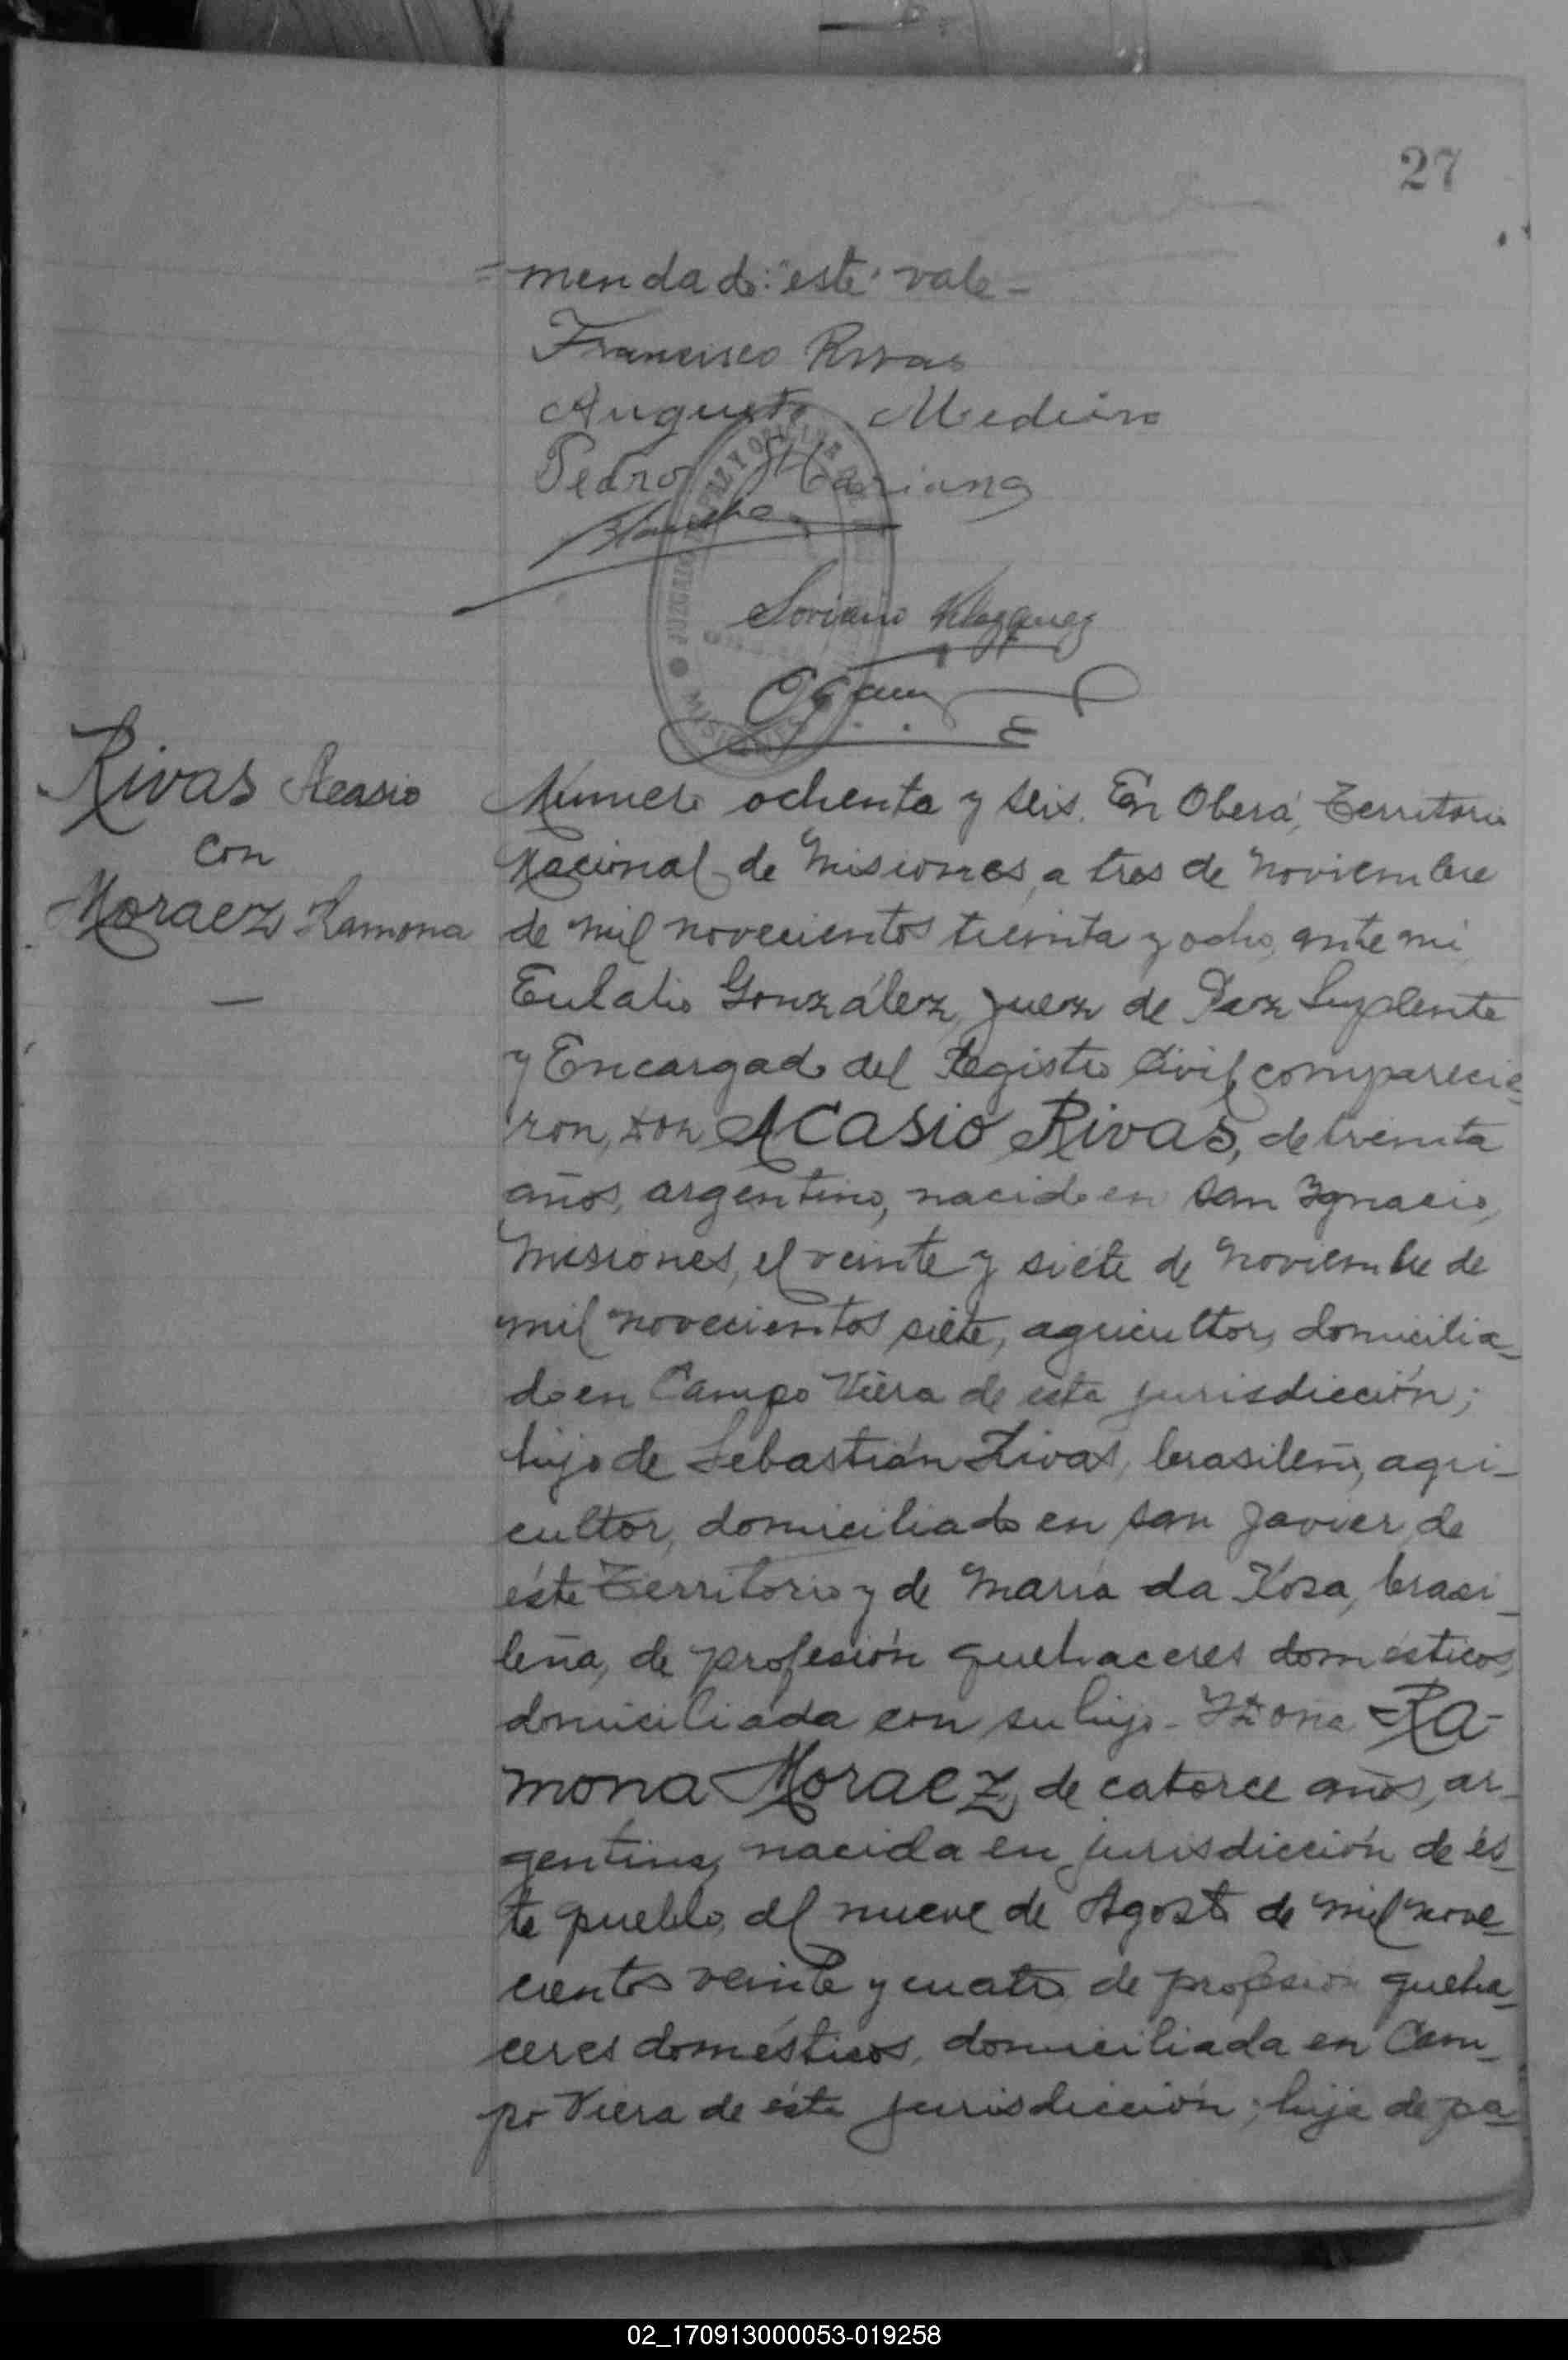 27
=mendado: "este" vale-
Francisco Rivas
Augusto Medeiro
Pedro Mariano
JUZGADO DE PAZ Y OFICINA
MISIONES
Soriano Velazquez
Rivas Acasio
con
Moraez Ramona
—
Número ochenta y seis. En Oberá, Territorio
Nacional de Misiones, a tres de Noviembre
de mil novecientos treinta y ocho, ante mí
Eulalio González, Juez de Paz Suplente
y Encargado del Registro Civil, comparecie_
ron, don ACASIO RIVAS, de treinta
años, argentino, nacido en San Ignacio,
Misiones, el veinte y siete de Noviembre de
mil novecientos siete, agricultor, domicilia_
do en Campo Viera de esta jurisdicción;
hijo de Sebastián Rivas, brasileño, agri_
cultor, domiciliado en San Javier, de
éste Territorio y de María da Rosa, brasi_
leña, de profesión quehaceres domésticos,
domiciliada con su hijo- Y doña RA-
MONA MORAEZ, de catorce años, ar_
gentina, nacida en jurisdicción de és_
te pueblo, el nueve de Agosto de mil nove_
cientos veinte y cuatro de profesión queha_
ceres domésticos, domiciliada en Cam_
po Viera de ésta jurisdicción; hija de pa_
02_170913000053-019258